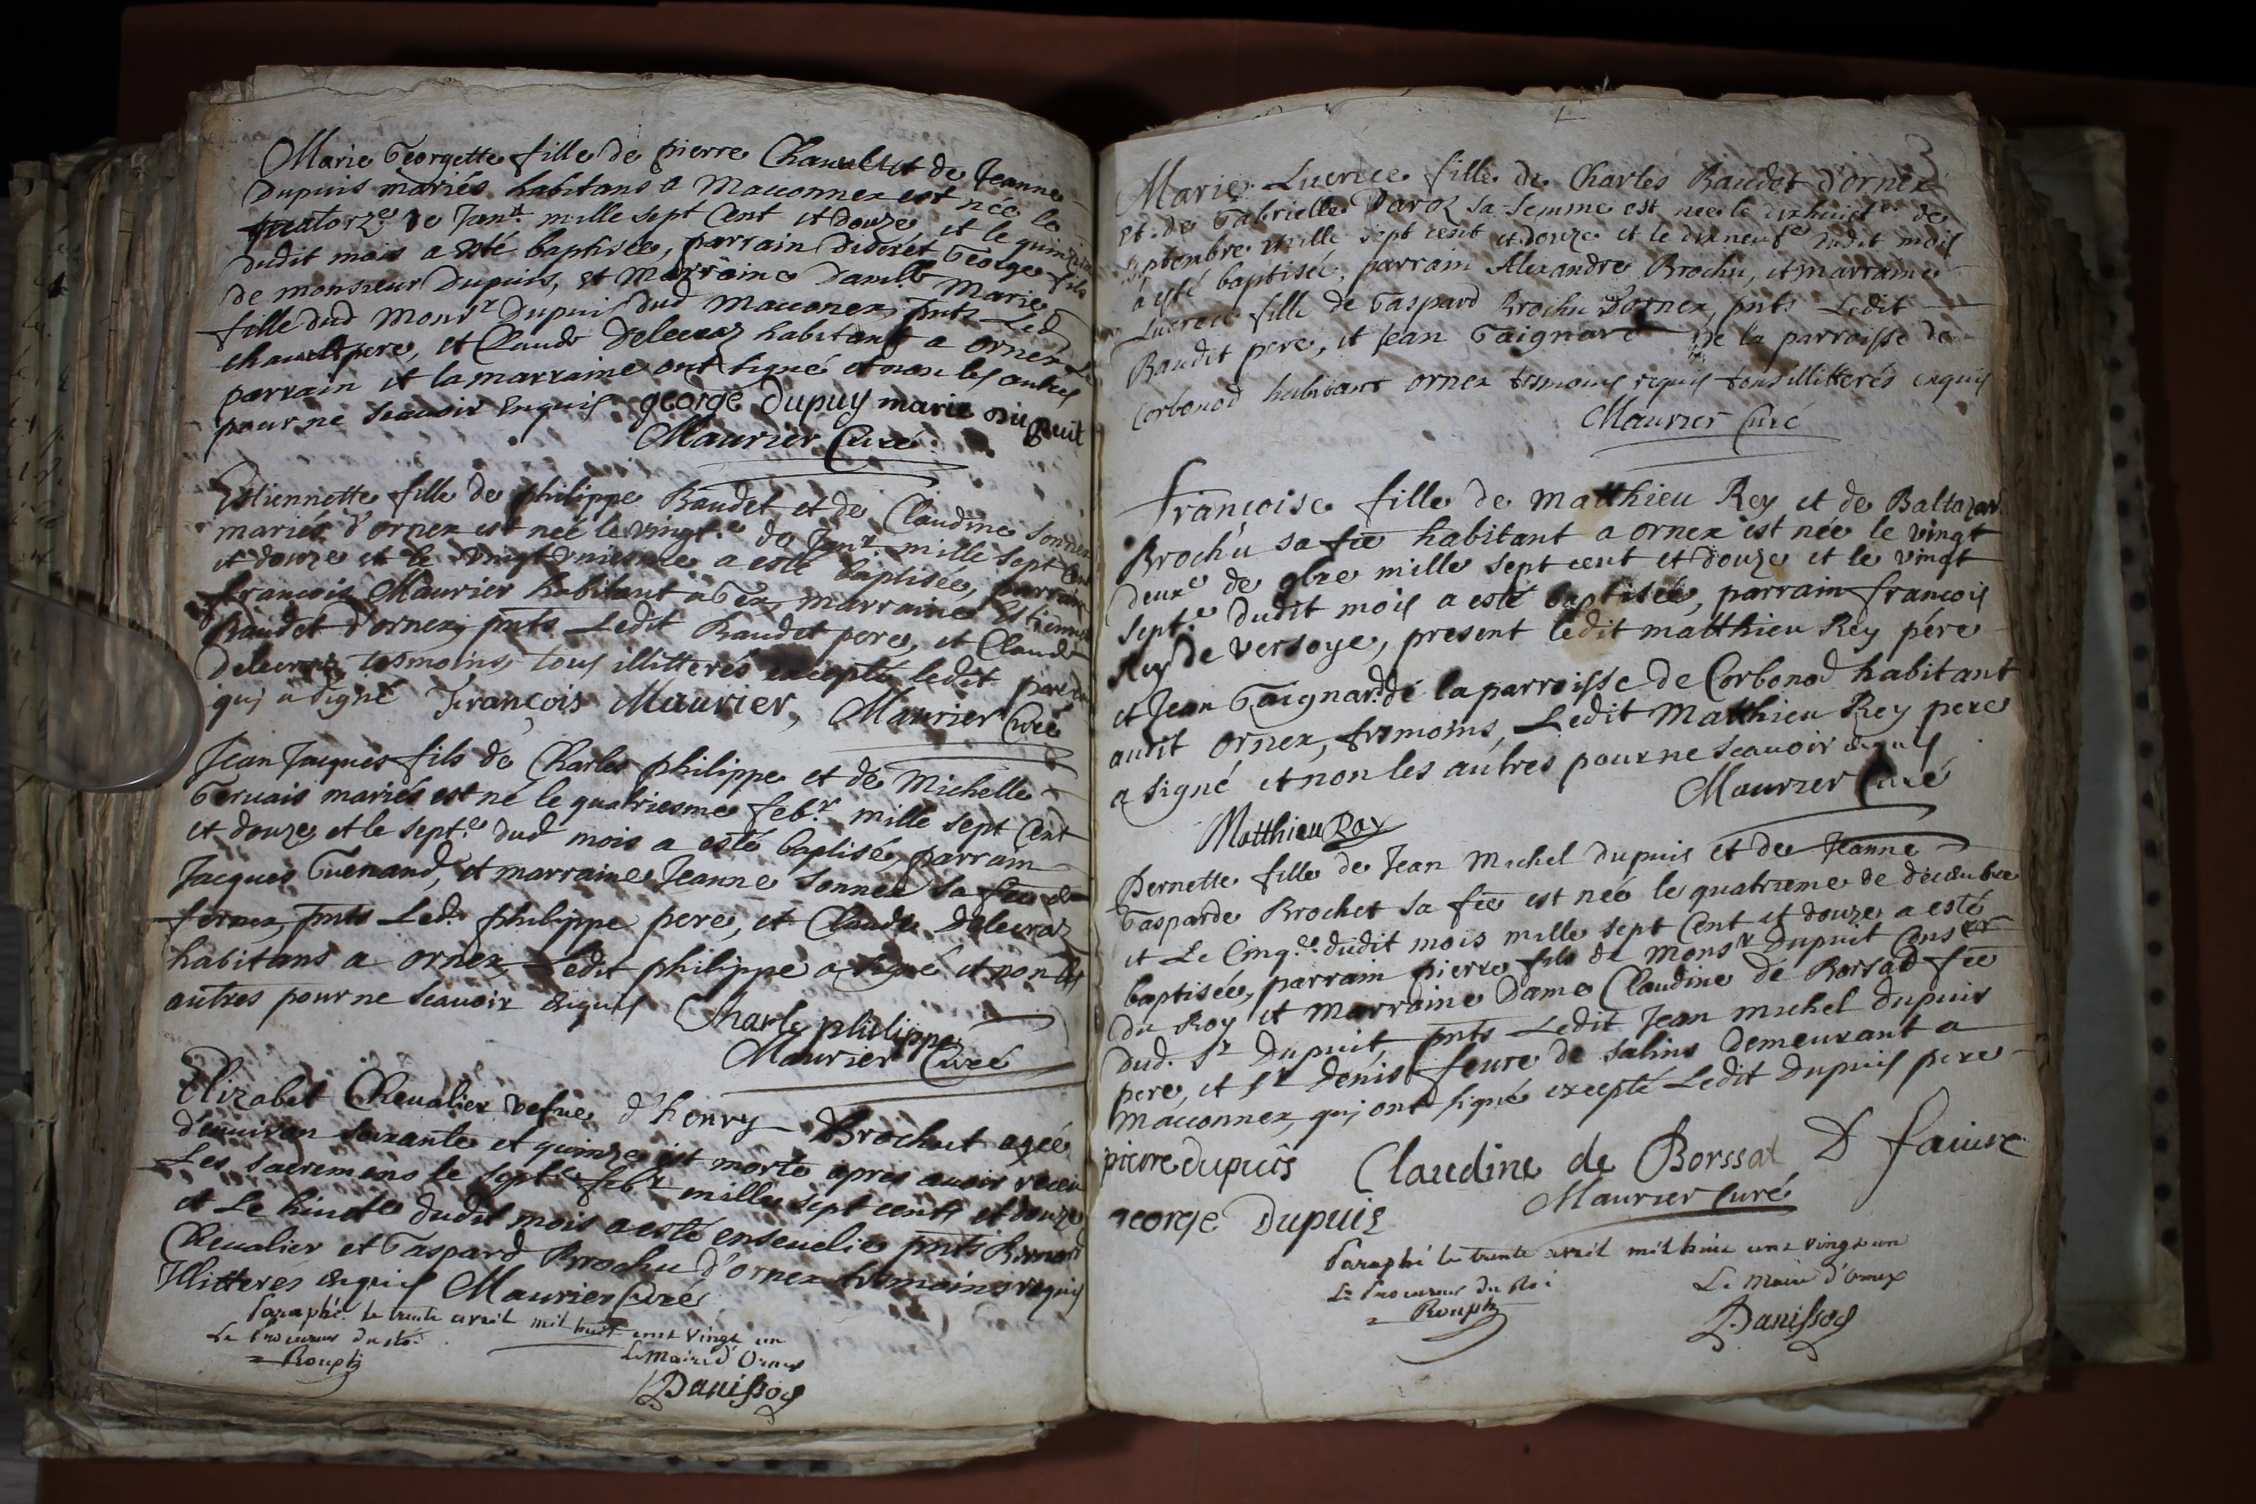 Marie Georgette fille de pierre Chauvlt et de Jeanne
Dupuis mariés habitans a Macconnex est née le
quatorze de Janr. mille sept Cent et douze, et le quinzie
dudit mois a esté baptisée, parrain George fils
de monsieur Dupuis, et Marraine Damlle Marie
fille dud Monsr Dupuis dud Macconex, pnts Led
pere, et Claude Delecraz habitant a ornex Le
parrain et la marraine ont signé et non les autres
pour ne scauoir enquis george Dupuy marie
Maurier Curé
Estiennette fille de philippe Baudet et de Claudine Sonnex
mariés d'ornex est née le vingt.e de Janr. mille sept Cent
et douze et le vingt vniesme a esté baptisée, parrain
francois Maurier habitant a Gex, marraine Estiennette
Baudet d'ornex, pnts Ledit Baudet pere, et Claude
Delecraz tesmoins, tous illitterés excepté ledit parrain
qui a signé François Maurier, Maurier Curé
Jean Jacques fils de Charles philippe et de Michelle
Geruais mariés est né le quatriesme febr. mille sept Cent
et douze et le sept.e dud mois a esté baptisé, parrain
Jacques Guenand, et marraine Jeanne Sonnex sa fẽe de
fernex, pnts Led. philippe pere, et Claude Delecraz
habitans a ornex, Ledit philippe a signé et non les
autres pour ne scauoir enquis
Charle philippe
Maurier Curé
Elizabet Cheualier vefue d'henry Brochut agée
d'enuiron soixante et quinze est morte apres auoir receu
Les sacremens le sept.e febr. mille sept cents et douze
et Le huicte dudit mois a esté enseuelie pnts Bernard
Cheualier et Gaspard Brochu d'ornex tesmoins requis
Illitterés enquis Maurier Curé
Paraphé le trente avril mil huit cent vingt un
Le Procureur du Roi Le Maire d'Ornex
Rouph
Panissod
3
Marie Lucrece fille de Charles Baudet d'ornex
et de Gabrielle Daroz sa femme est née le dixhuict.e de
septembre mille sept cent et douze et le dixneufe dudit mois
a esté baptisée, parrain Alexandre Brochu, et marraine
Lucrece fille de Gaspard Brochu d'ornex, pnts Ledit
Baudet pere, et Jean Gaignard de la parroisse de
Corbonod habitant ornex tesmoins requis tous illitterés enquis
Maurier Curé
Françoise fille de Matthieu Rey et de Baltazard.
Brochu sa fẽe habitant a ornex est née le vingt
deuxe de 9bre mille sept cent et douze et le vingt
sept.e dudit mois a esté baptisée, parrain françois
Rey de versoye, present ledit matthieu Rey pére
et Jean Gaignard de la parroisse de Corbonod habitant
audit ornex, tesmoins, Ledit Matthieu Rey pere
a signé et non les autres pour ne scauoir enquis
Maurier Curé
Matthieu Ray
Pernette fille de Jean Michel Dupuis et de Jeanne
Gasparde Brochet sa fẽe est née le quatrieme de décembre
et Le Cinq.e dudit mois mille sept Cent et douze a esté
baptisée, parrain pierre fils de Monsr Dupuit Conser
du Roy et Marraine Dame Claudine de Borsad fẽe
dud. Sr Dupuit, pnts Ledit Jean michel Dupuis
pere, et Sr Denis feure de Salins demeurant a
Macconnex, qui ont signé excepté Ledit Dupuis pere
pierre dupuis Claudine de Borssat D faiure
george Dupuis Maurier curé
Paraphé le trente avril mil huit cent vingt un
Le Procureur du Roi Le Maire d'Ornex
Rouph
Panissod